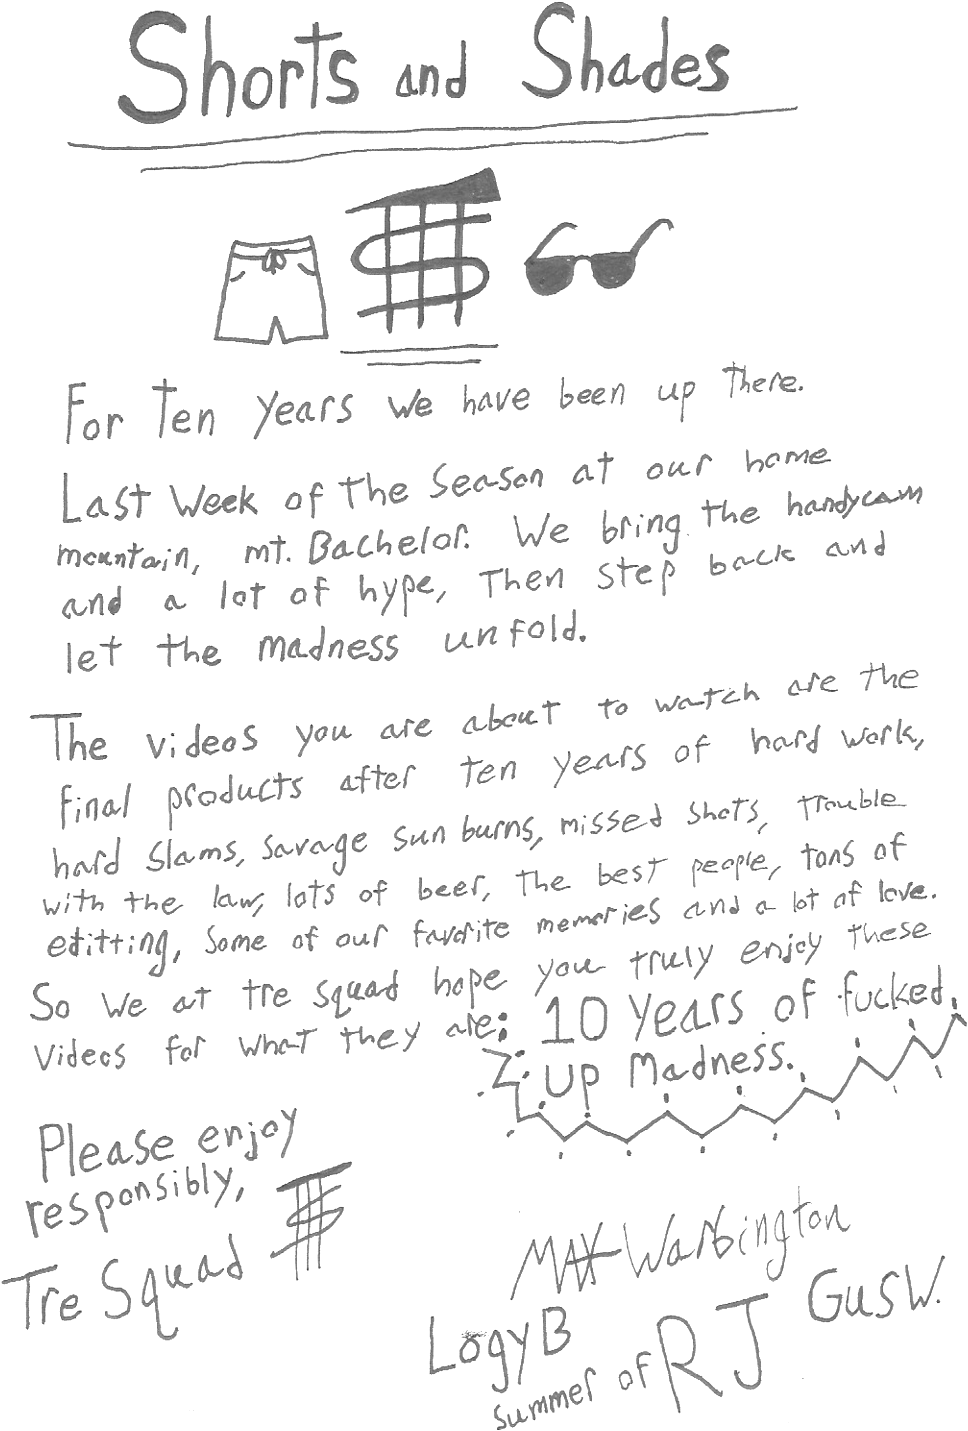 Shorts and Shades
For Ten years we have been up There.
Last week of the season at our home
mountain, mt. Bachelor. We bring the handycam
and a lot of hype, Then step back and
let the madness unfold.
The videos you are about to watch are the
final products after ten years of hard work,
hard slams, savage sun burns, missed shots, trouble
with the law, lots of beer, the best people, tons of
editting, some of our favorite memories and a lot of love.
So we at tre squad hope you truly enjoy these
videos for what they are: 10 years of fucked
up madness.
Please enjoy
responsibly,
Tre Squad
MAX Warbington
Logy B
Gus W.
summer of RJ